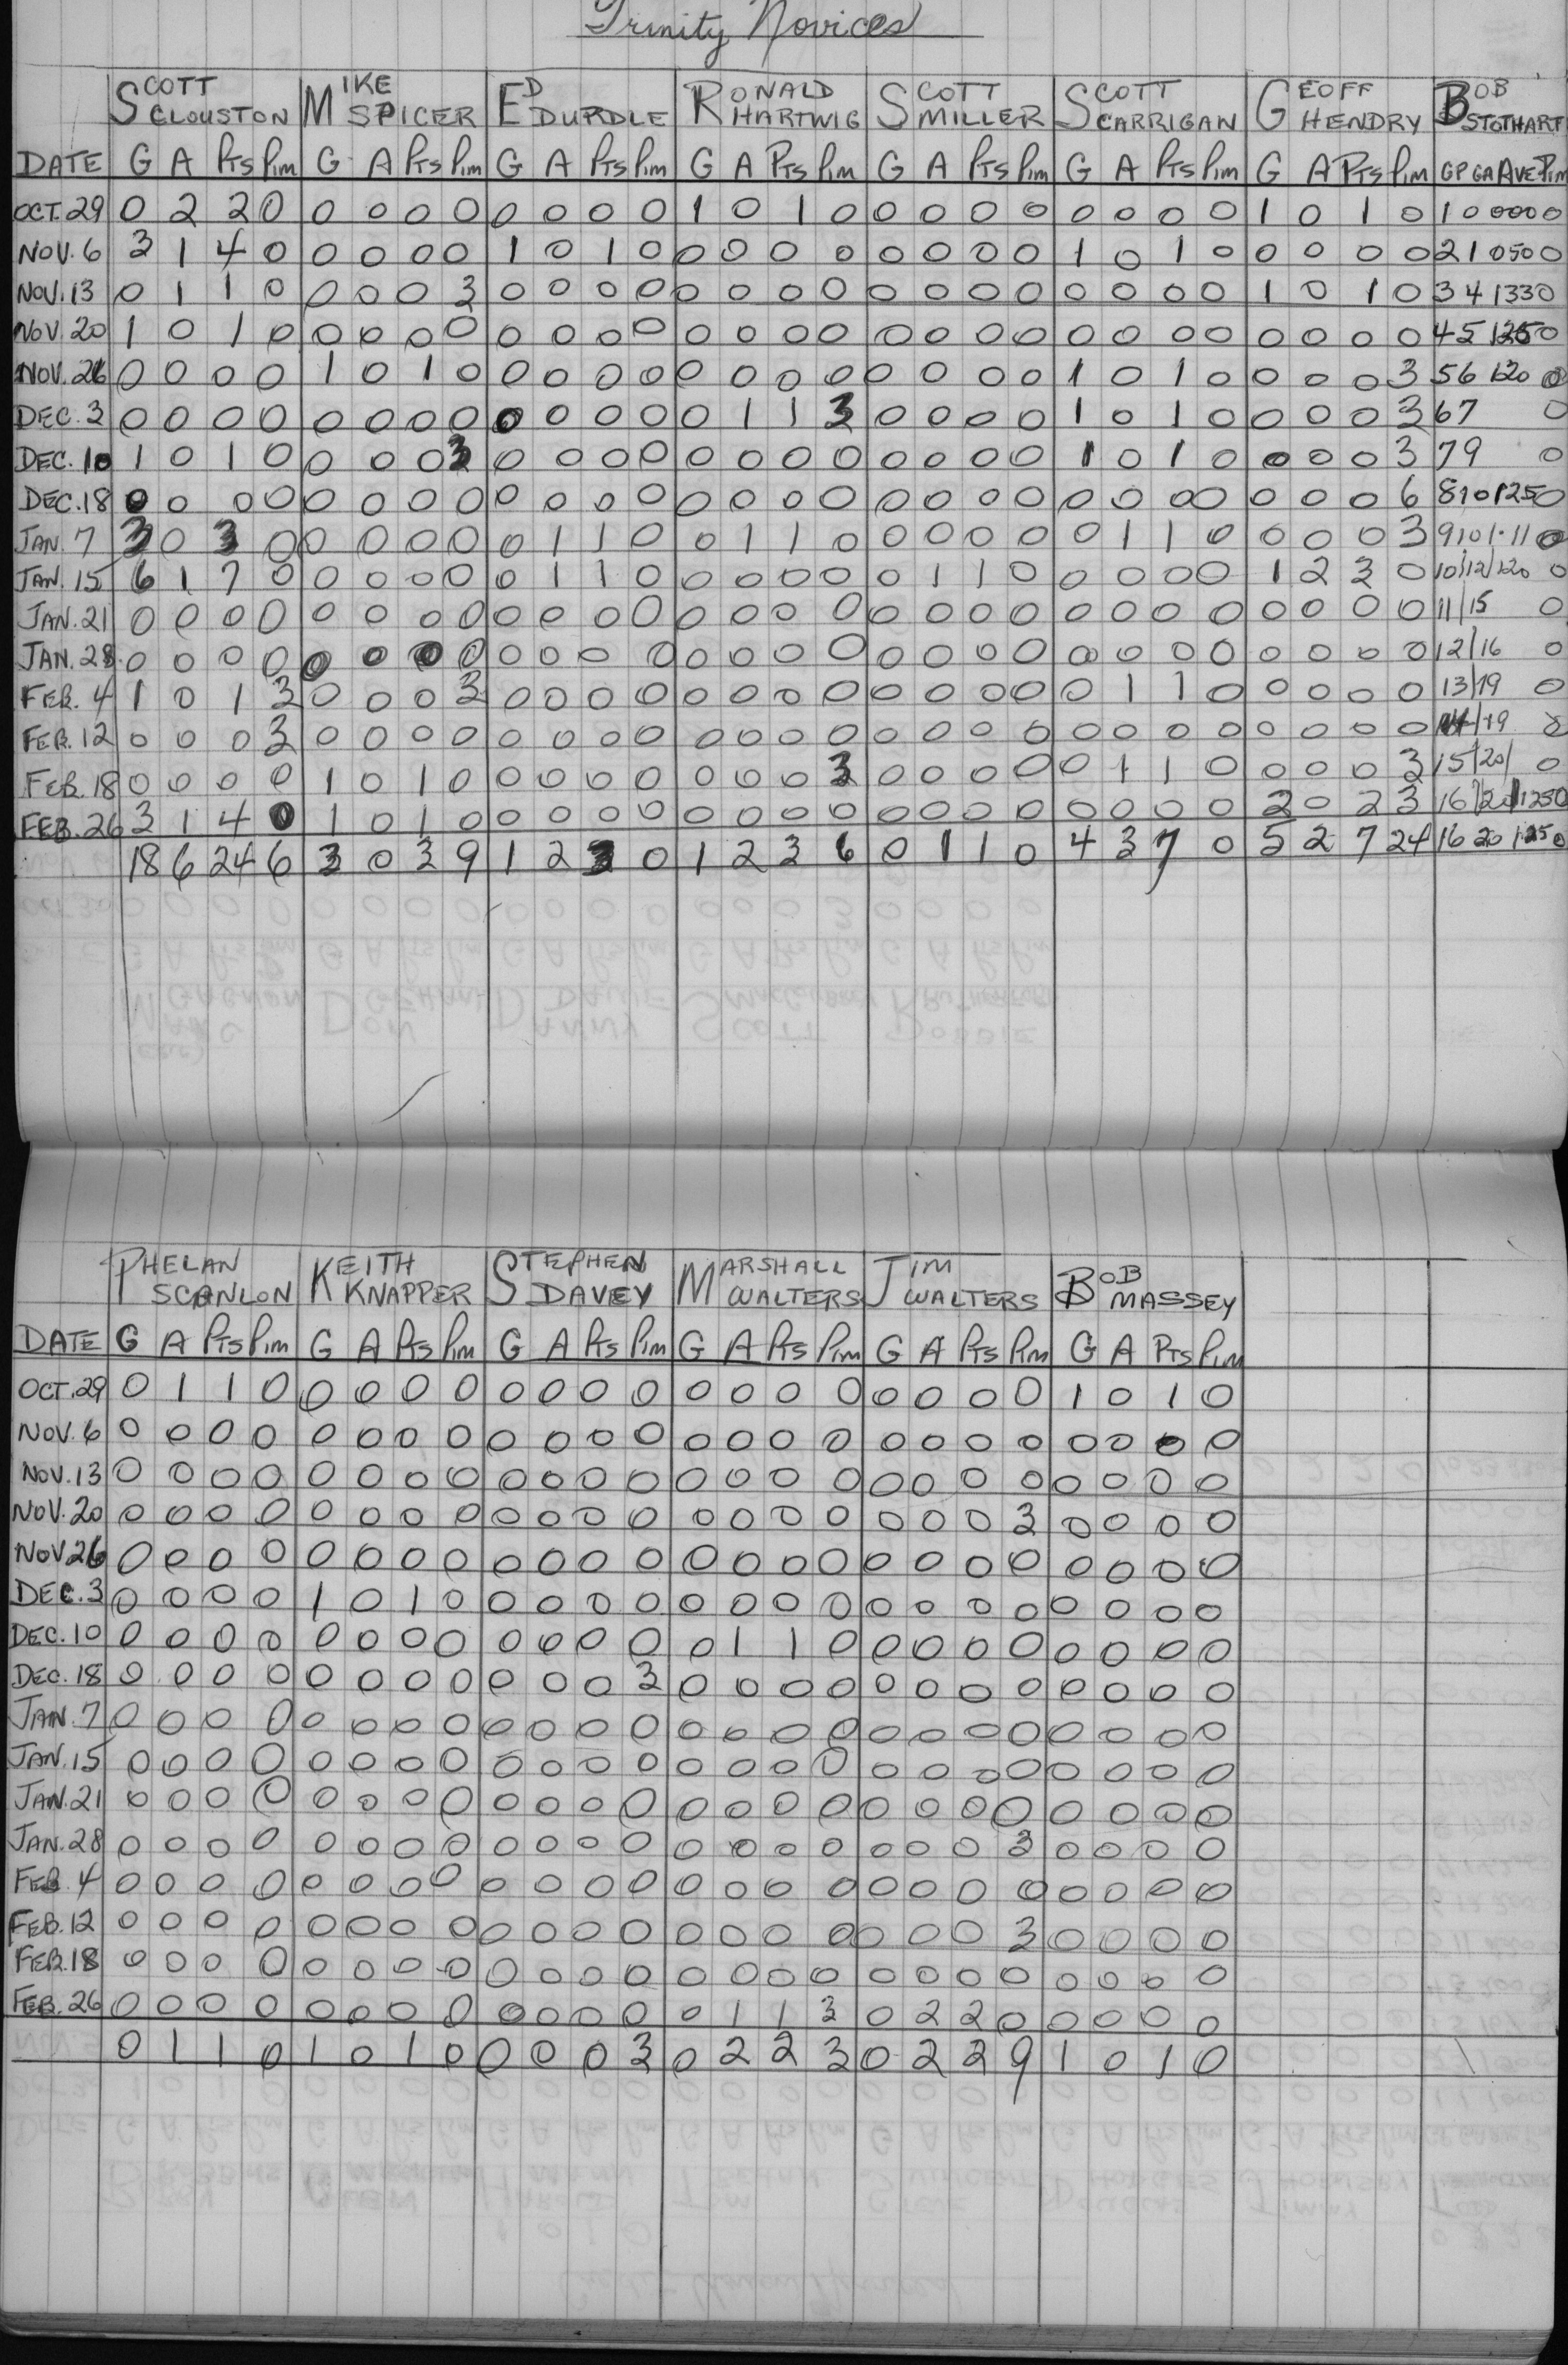 Trinity Novices
SCOTT CLOUSTON MIKE SPICER ED DURDLE RONALD HARTWIG SCOTT MILLER SCOTT CARRIGAN GEOFF HENDRY BOB STOTHART
DATE G A Pts Pim G A Pts Pim G A Pts Pim G A Pts Pim G A Pts Pim G A Pts Pim G A Pts Pim GP GA AVE Pim
OCT. 29 0 2 2 0 0 0 0 0 0 0 0 0 1 0 1 0 0 0 0 0 0 0 0 0 1 0 1 0 1 0 000 0
NOV. 6 3 1 4 0 0 0 0 0 1 0 1 0 0 0 0 0 0 0 0 0 1 0 1 0 0 0 0 0 2 1 050 0
NOV. 13 0 1 1 0 0 0 0 3 0 0 0 0 0 0 0 0 0 0 0 0 0 0 0 0 1 0 1 0 3 4 133 0
NOV. 20 1 0 1 0 0 0 0 0 0 0 0 0 0 0 0 0 0 0 0 0 0 0 0 0 0 0 0 0 4 5 125 0
NOV. 26 0 0 0 0 1 0 1 0 0 0 0 0 0 0 0 0 0 0 0 0 1 0 1 0 0 0 0 3 5 6 120 0
DEC. 3 0 0 0 0 0 0 0 0 0 0 0 0 0 1 1 3 0 0 0 0 1 0 1 0 0 0 0 3 6 7 0
DEC. 10 1 0 1 0 0 0 0 3 0 0 0 0 0 0 0 0 0 0 0 0 1 0 1 0 0 0 0 3 7 9 0
DEC. 18 0 0 0 0 0 0 0 0 0 0 0 0 0 0 0 0 0 0 0 0 0 0 0 0 0 0 0 6 8 10 125 0
JAN. 7 3 0 3 0 0 0 0 0 0 1 1 0 0 1 1 0 0 0 0 0 0 1 1 0 0 0 0 3 9 10 1.11 0
JAN. 15 6 1 7 0 0 0 0 0 0 1 1 0 0 0 0 0 0 1 1 0 0 0 0 0 1 2 3 0 10/12/120 0
JAN. 21 0 0 0 0 0 0 0 0 0 0 0 0 0 0 0 0 0 0 0 0 0 0 0 0 0 0 0 0 11/15 0
JAN. 28 0 0 0 0 0 0 0 0 0 0 0 0 0 0 0 0 0 0 0 0 0 0 0 0 0 0 0 0 12/16 0
FEB. 4 1 0 1 3 0 0 0 3 0 0 0 0 0 0 0 0 0 0 0 0 0 1 1 0 0 0 0 0 13/19 0
FEB. 12 0 0 0 3 0 0 0 0 0 0 0 0 0 0 0 0 0 0 0 0 0 0 0 0 0 0 0 0 14/19
FEB. 18 0 0 0 0 1 0 1 0 0 0 0 0 0 0 0 3 0 0 0 0 0 1 1 0 0 0 0 3 15/20/ 0
FEB. 26 3 1 4 0 1 0 1 0 0 0 0 0 0 0 0 0 0 0 0 0 0 0 0 0 2 0 2 3 16/20/125 0
18 6 24 6 3 0 3 9 1 2 3 0 1 2 3 6 0 1 1 0 4 3 7 0 5 2 7 24 16 20 1.25 0
PHELAN SCANLON KEITH KNAPPER STEPHEN DAVEY MARSHALL WALTERS JIM WALTERS BOB MASSEY
DATE G A Pts Pim G A Pts Pim G A Pts Pim G A Pts Pim G A Pts Pim G A Pts Pim
OCT. 29 0 1 1 0 0 0 0 0 0 0 0 0 0 0 0 0 0 0 0 0 1 0 1 0
NOV. 6 0 0 0 0 0 0 0 0 0 0 0 0 0 0 0 0 0 0 0 0 0 0 0 0
NOV. 13 0 0 0 0 0 0 0 0 0 0 0 0 0 0 0 0 0 0 0 0 0 0 0 0
NOV. 20 0 0 0 0 0 0 0 0 0 0 0 0 0 0 0 0 0 0 0 3 0 0 0 0
NOV 26 0 0 0 0 0 0 0 0 0 0 0 0 0 0 0 0 0 0 0 0 0 0 0 0
DEC. 3 0 0 0 0 1 0 1 0 0 0 0 0 0 0 0 0 0 0 0 0 0 0 0 0
DEC. 10 0 0 0 0 0 0 0 0 0 0 0 0 0 1 1 0 0 0 0 0 0 0 0 0
DEC. 18 0 0 0 0 0 0 0 0 0 0 0 3 0 0 0 0 0 0 0 0 0 0 0 0
JAN. 7 0 0 0 0 0 0 0 0 0 0 0 0 0 0 0 0 0 0 0 0 0 0 0 0
JAN. 15 0 0 0 0 0 0 0 0 0 0 0 0 0 0 0 0 0 0 0 0 0 0 0 0
JAN. 21 0 0 0 0 0 0 0 0 0 0 0 0 0 0 0 0 0 0 0 0 0 0 0 0
JAN. 28 0 0 0 0 0 0 0 0 0 0 0 0 0 0 0 0 0 0 0 3 0 0 0 0
FEB. 4 0 0 0 0 0 0 0 0 0 0 0 0 0 0 0 0 0 0 0 0 0 0 0 0
FEB. 12 0 0 0 0 0 0 0 0 0 0 0 0 0 0 0 0 0 0 0 3 0 0 0 0
FEB. 18 0 0 0 0 0 0 0 0 0 0 0 0 0 0 0 0 0 0 0 0 0 0 0 0
FEB. 26 0 0 0 0 0 0 0 0 0 0 0 0 0 1 1 3 0 2 2 0 0 0 0 0
0 1 1 0 1 0 1 0 0 0 0 3 0 2 2 3 0 2 2 9 1 0 1 0